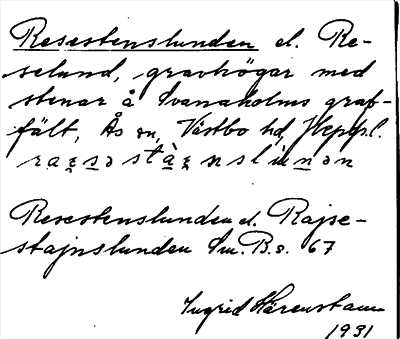 Resestenslunden el. Re-
selund, gravhögar med
stenar å Svanaholms graf-
fält, Ås sn, Västbo hd,
Resestenslunden el. Rajse-
stajnslunden Sm. B. s. 67
Ingrid Härenstam
1931